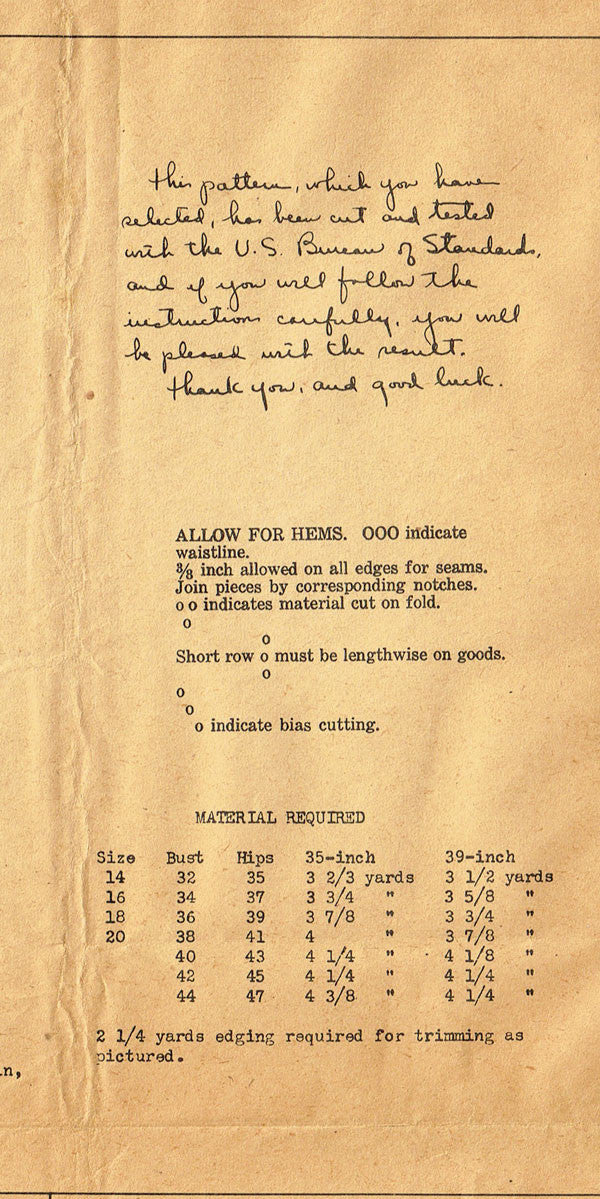 This pattern, which you have
selected, has been cut and tested
with the U.S. Bureau of Standards,
and if you will follow the
instructions carefully, you will
be pleased with the result.
Thank you, and good luck.
ALLOW FOR HEMS. OOO indicate
waistline.
⅜ inch allowed on all edges for seams.
Join pieces by corresponding notches.
o o indicates material cut on fold.
o
o
Short row o must be lengthwise on goods.
o
o
o
o indicate bias cutting.
MATERIAL REQUIRED
Size Bust Hips 35-inch 39-inch
14 32 35 3 2/3 yards 3 1/2 yards
16 34 37 3 3/4 " 3 5/8 "
18 36 39 3 7/8 " 3 3/4 "
20 38 41 4 " 3 7/8 "
40 43 4 1/4 " 4 1/8 "
42 45 4 1/4 " 4 1/4 "
44 47 4 3/8 " 4 1/4 "
2 1/4 yards edging required for trimming as
pictured.